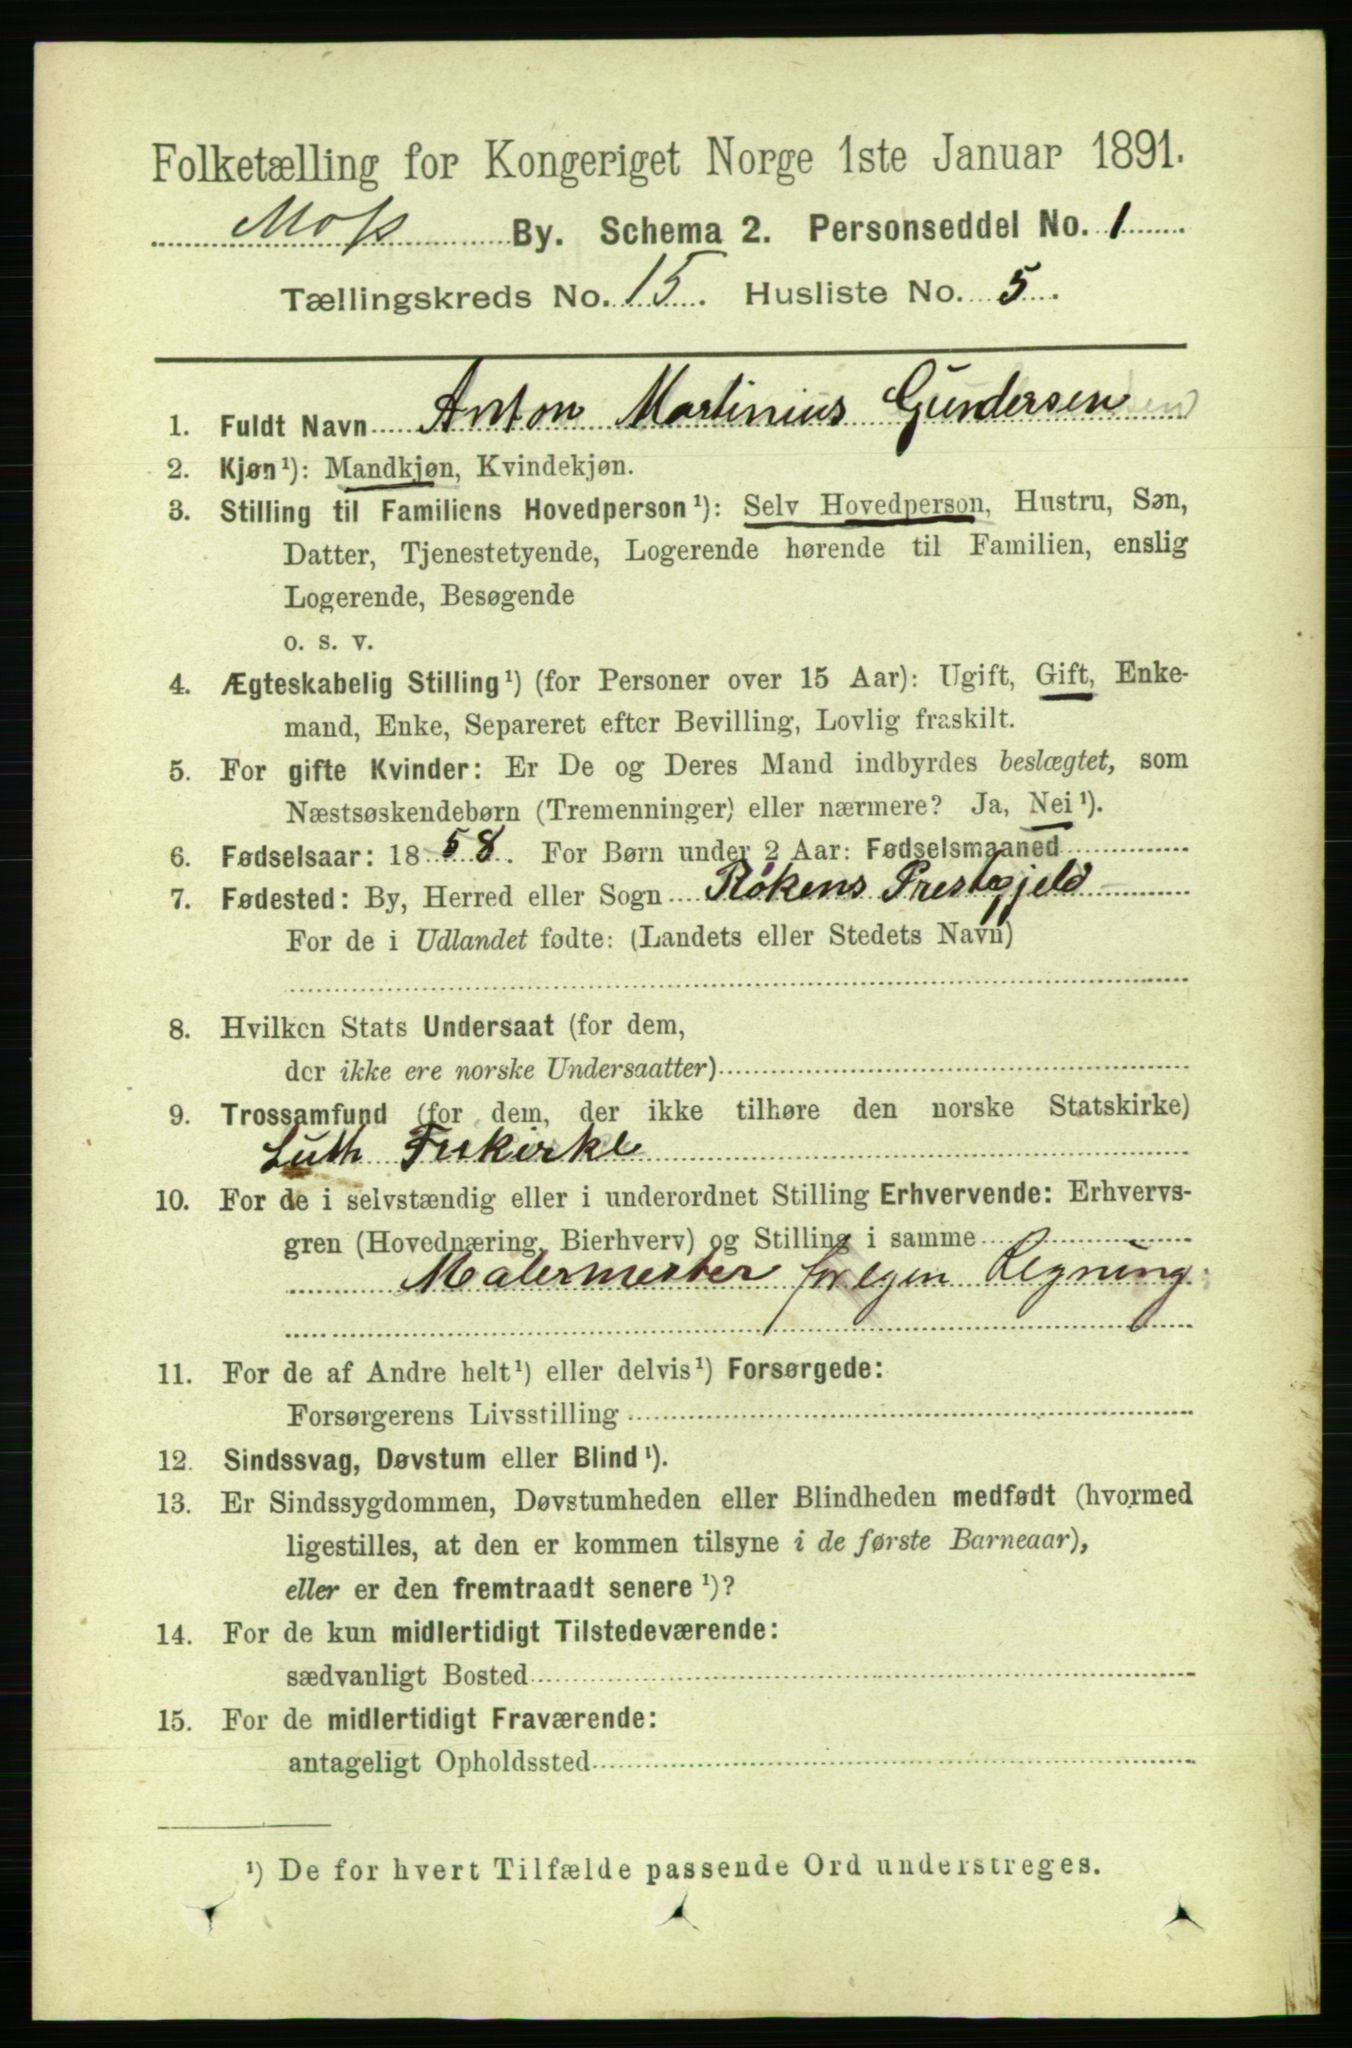 Folketælling for Kongeriget Norge 1ste Januar 1891.
Moss By. Schema 2. Personseddel No. 1
Tællingskreds No. 15. Husliste No. 5.
1. Fuldt Navn Anton Martinius Gundersen
2. Kjøn¹): Mandkjøn, Kvindekjøn.
3. Stilling til Familiens Hovedperson¹): Selv Hovedperson, Hustru, Søn,
Datter, Tjenestetyende, Logerende hørende til Familien, enslig
Logerende, Besøgende
o. s. v.
4. Ægteskabelig Stilling¹) (for Personer over 15 Aar): Ugift, Gift, Enke-
mand, Enke, Separeret efter Bevilling, Lovlig fraskilt.
5. For gifte Kvinder: Er De og Deres Mand indbyrdes beslægtet, som
Næstsøskendebørn (Tremenninger) eller nærmere? Ja, Nei¹).
6. Fødselsaar: 1858. For Børn under 2 Aar: Fødselsmaaned
7. Fødested: By, Herred eller Sogn Røkens Prestegjeld
For de i Udlandet fødte: (Landets eller Stedets Navn)
8. Hvilken Stats Undersaat (for dem,
der ikke ere norske Undersaatter)
9. Trossamfund (for dem, der ikke tilhøre den norske Statskirke)
Luth Frikirke
10. For de i selvstændig eller i underordnet Stilling Erhvervende: Erhvervs-
gren (Hovednæring, Bierhverv) og Stilling i samme
Malermester for egen Regning
11. For de af Andre helt¹) eller delvis¹) Forsørgede:
Forsørgerens Livsstilling
12. Sindssvag, Døvstum eller Blind¹).
13. Er Sindssygdommen, Døvstumheden eller Blindheden medfødt (hvormed
ligestilles, at den er kommen tilsyne i de første Barneaar),
eller er den fremtraadt senere¹)?
14. For de kun midlertidigt Tilstedeværende:
sædvanligt Bosted
15. For de midlertidigt Fraværende:
antageligt Opholdssted
¹) De for hvert Tilfælde passende Ord understreges.